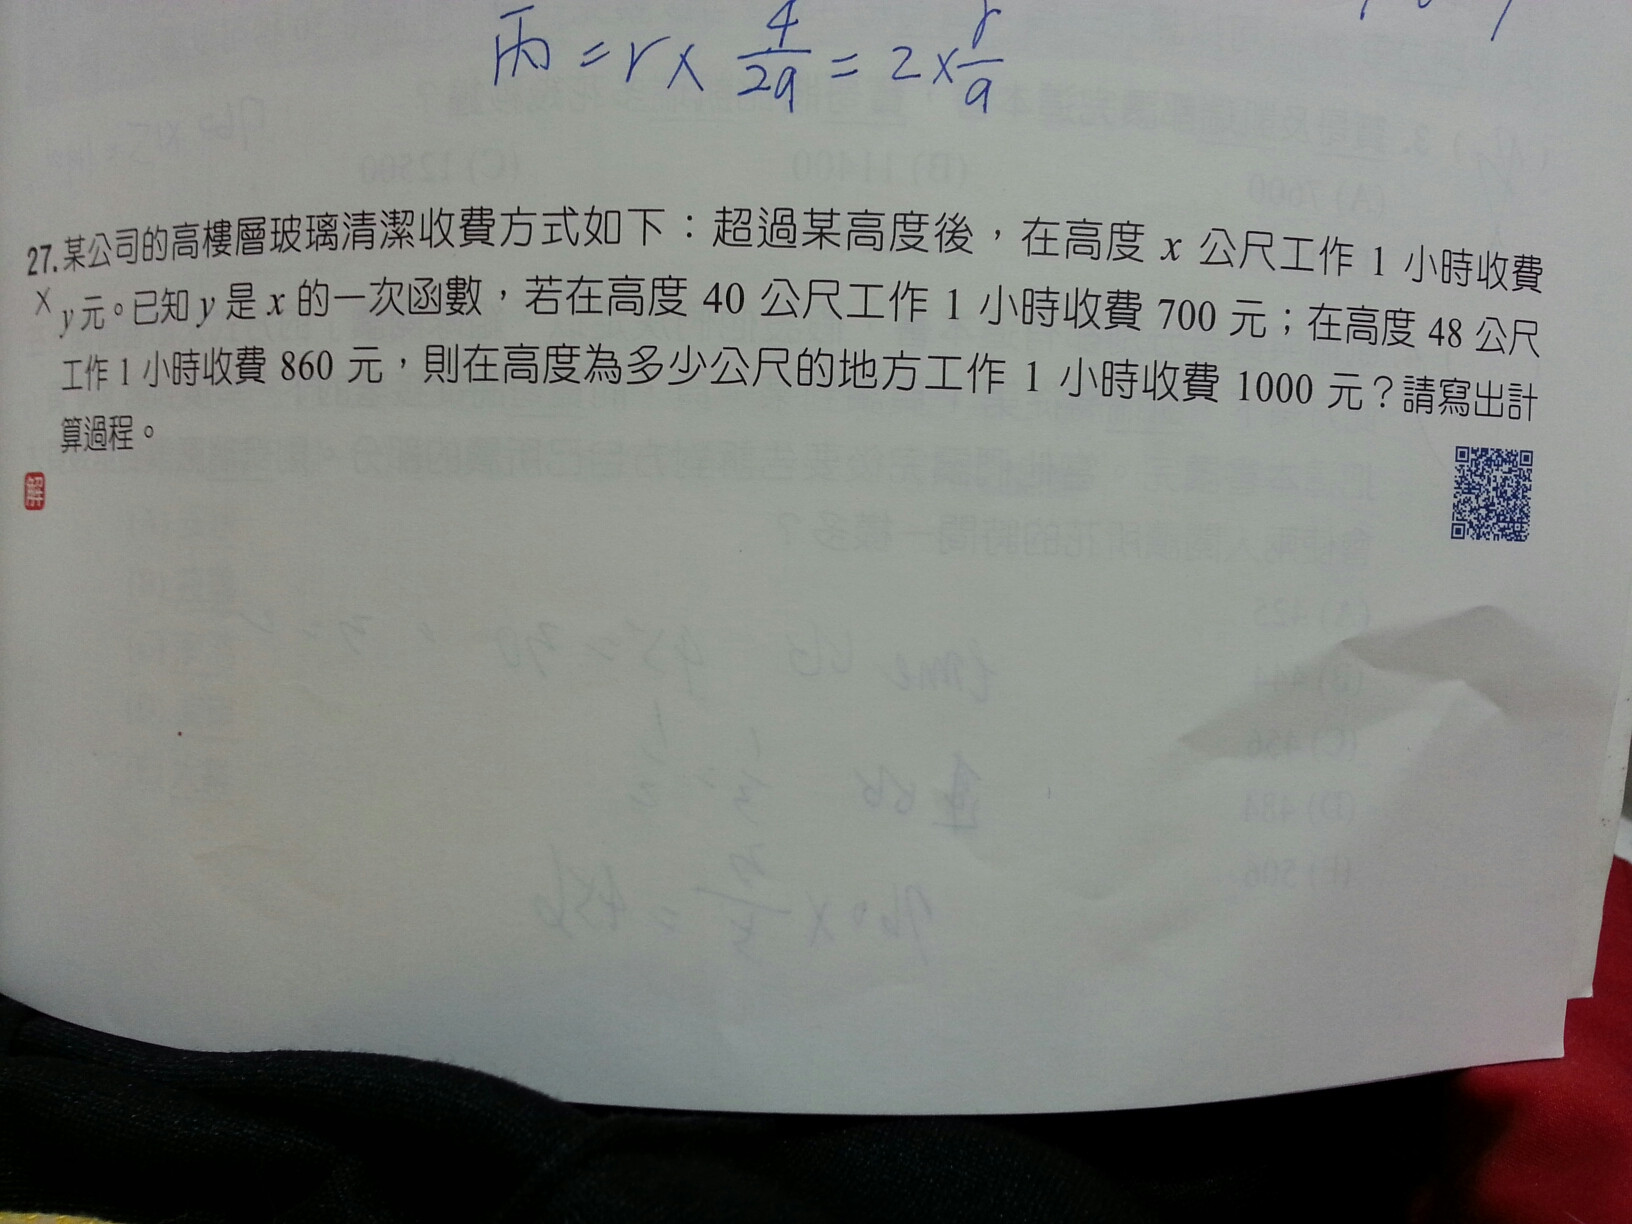 丙 = r × 4/29 = 2 × r/9
27. 某公司的高樓層玻璃清潔收費方式如下：超過某高度後，在高度 x 公尺工作 1 小時收費
× y 元。已知 y 是 x 的一次函數，若在高度 40 公尺工作 1 小時收費 700 元；在高度 48 公尺
工作 1 小時收費 860 元，則在高度為多少公尺的地方工作 1 小時收費 1000 元？請寫出計
算過程。
解